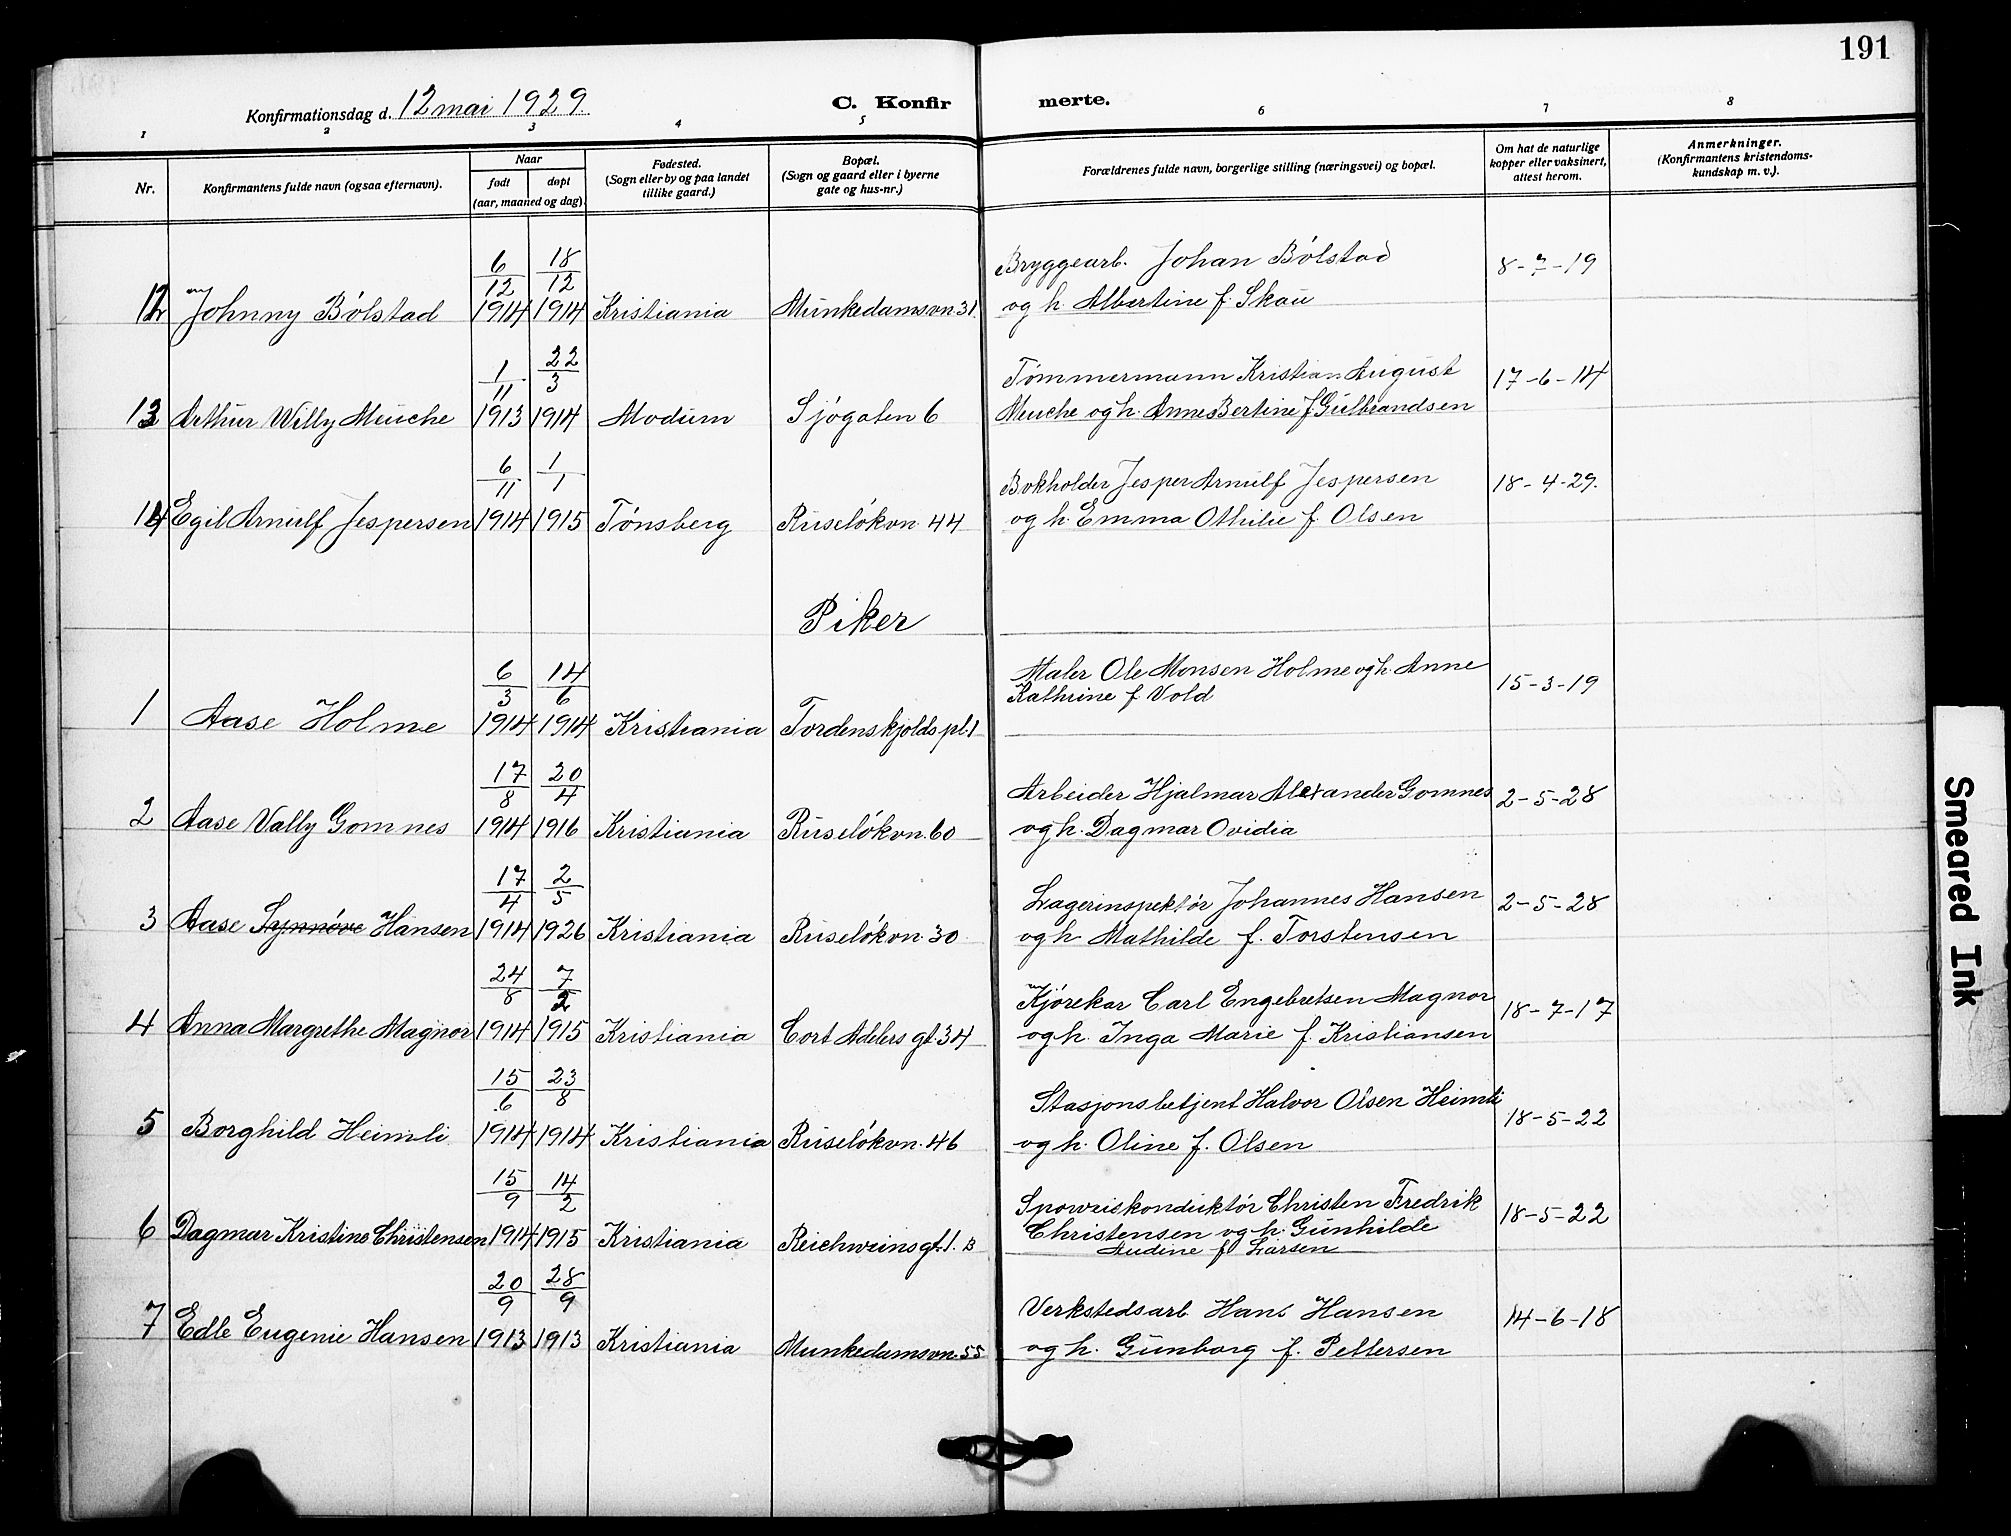 191
Konfirmationsdag d. 12 mai 1929.
C. Konfir merte.
1 2 3 4 5 6 7 8
Nr.
Konfirmantens fulde navn (ogsaa efternavn).
Naar
født døpt
(aar, maaned og dag).
Fødested.
(Sogn eller by og paa landet
tillike gaard.)
Bopæl.
(Sogn og gaard eller i byerne
gate og hus-nr.)
Forældrenes fulde navn, borgerlige stilling (næringsvei) og bopæl.
Om hat de naturlige
kopper eller vaksinert,
attest herom.
Anmerkninger.
(Konfirmantens kristendoms-
kundskap m. v.).
6/12 18/12 Bryggearb. Johan Bølstad 8-7-19
12 Johnny Bølstad 1914 1914 Kristiania Munkedamsvn. 31 og h. Albertine f. Skau
1/11 22/3 Tømmermann Kristian August 17-6-14
13 Arthur Willy Meuche 1913 1914 Modum Sjøgaten 6 Meuche og h. Anne Bertine f Gulbrandsen
6/11 1/1 Bokholder Jesper Arnulf Jespersen 18-4-29.
14 Egil Arnulf Jespersen 1914 1915 Tønsberg Ruseløkvn. 44 og h. Emma Othilie f. Olsen
Piker
6/3 14/6 Maler Ole Monsen Holme og h. Anne 15-3-19
Kathrine f. Vold
1 Aase Holme 1914 1914 Kristiania Tordenskjolds pl. 1
17/8 20/4 Arbeider Hjalmar Alexander Gomnes 2-5-28
2 Aase Vally Gomnes 1914 1916 Kristiania Ruseløkvn. 60 og h. Dagmar Ovidia
17/4 2/5 Lagerinspektør Johannes Hansen 2-5-28
3 Aase Synnøve Hansen 1914 1926 Kristiania Ruseløkvn. 30 og h. Mathilde f. Torstensen
24/8 7/2 Kjørekar Carl Engebretsen Magnor 18-7-17
4 Anna Margrethe Magnor 1914 1915 Kristiania Cort Adelers gt. 34 og h. Inga Marie f. Kristiansen
15/6 23/8 Stasjonsbetjent Halvor Olsen Heimli 18-5-22
5 Borghild Heimli 1914 1914 Kristiania Ruseløkvn. 46 og h. Oline f. Olsen
15/9 14/2 Sporveiskonduktør Christen Fredrik 18-5-22
6 Dagmar Kristine Christensen 1914 1915 Kristiania Reichweinsgt. 1. B Christensen og h. Gunhilde
Audine f. Larsen
20/9 28/9 Verkstedsarb Hans Hansen 14-6-18
7 Edle Eugenie Hansen 1913 1913 Kristiania Munkedamsvn. 55 og h. Gunborg f. Pettersen
Smeared Ink